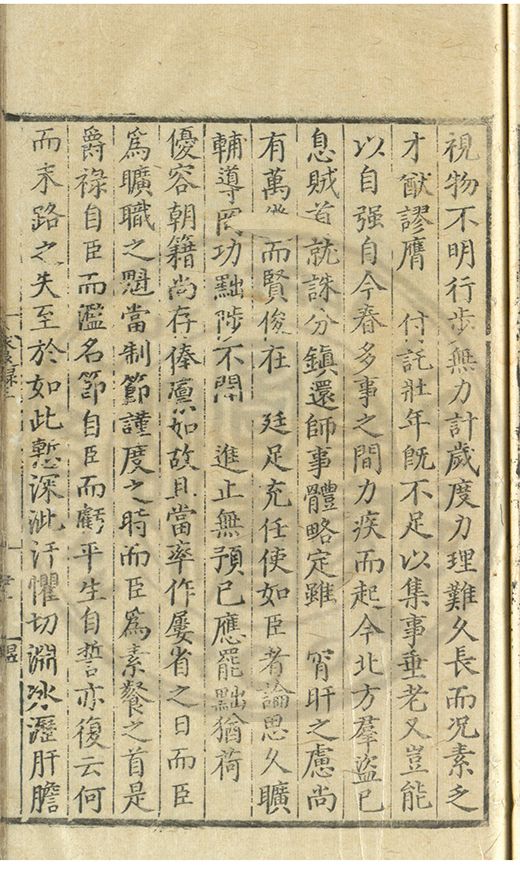 視物不明行步無力計歲度力理難久長而況素乏
才猷謬膺　付託壯年旣不足以集事垂老又豈能
以自强自今春多事之間力疾而起今北方羣盜已
息賊首就誅分鎮還師事體略定雖　宵旰之慮尚
有萬幾而賢俊在　廷足充任使如臣者論思久曠
輔導罔功黜陟不聞　進止無預已應罷黜猶荷
優容朝籍尚存俸廩如故且當率作屢省之日而臣
爲曠職之魁當制節謹度之時而臣爲素餐之首是
爵祿自臣而濫名節自臣而虧平生自誓亦復云何
而末路之失至於如此慙深泚汗懼切淵氷瀝肝膽